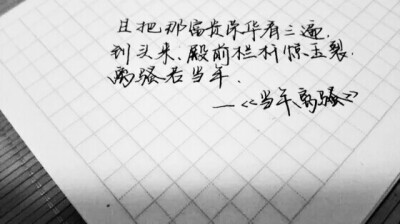 且把那富贵荣华看三遍,
到头来、殿前栏杆惊玉裂.
离骚若当年.
—《当年离骚》